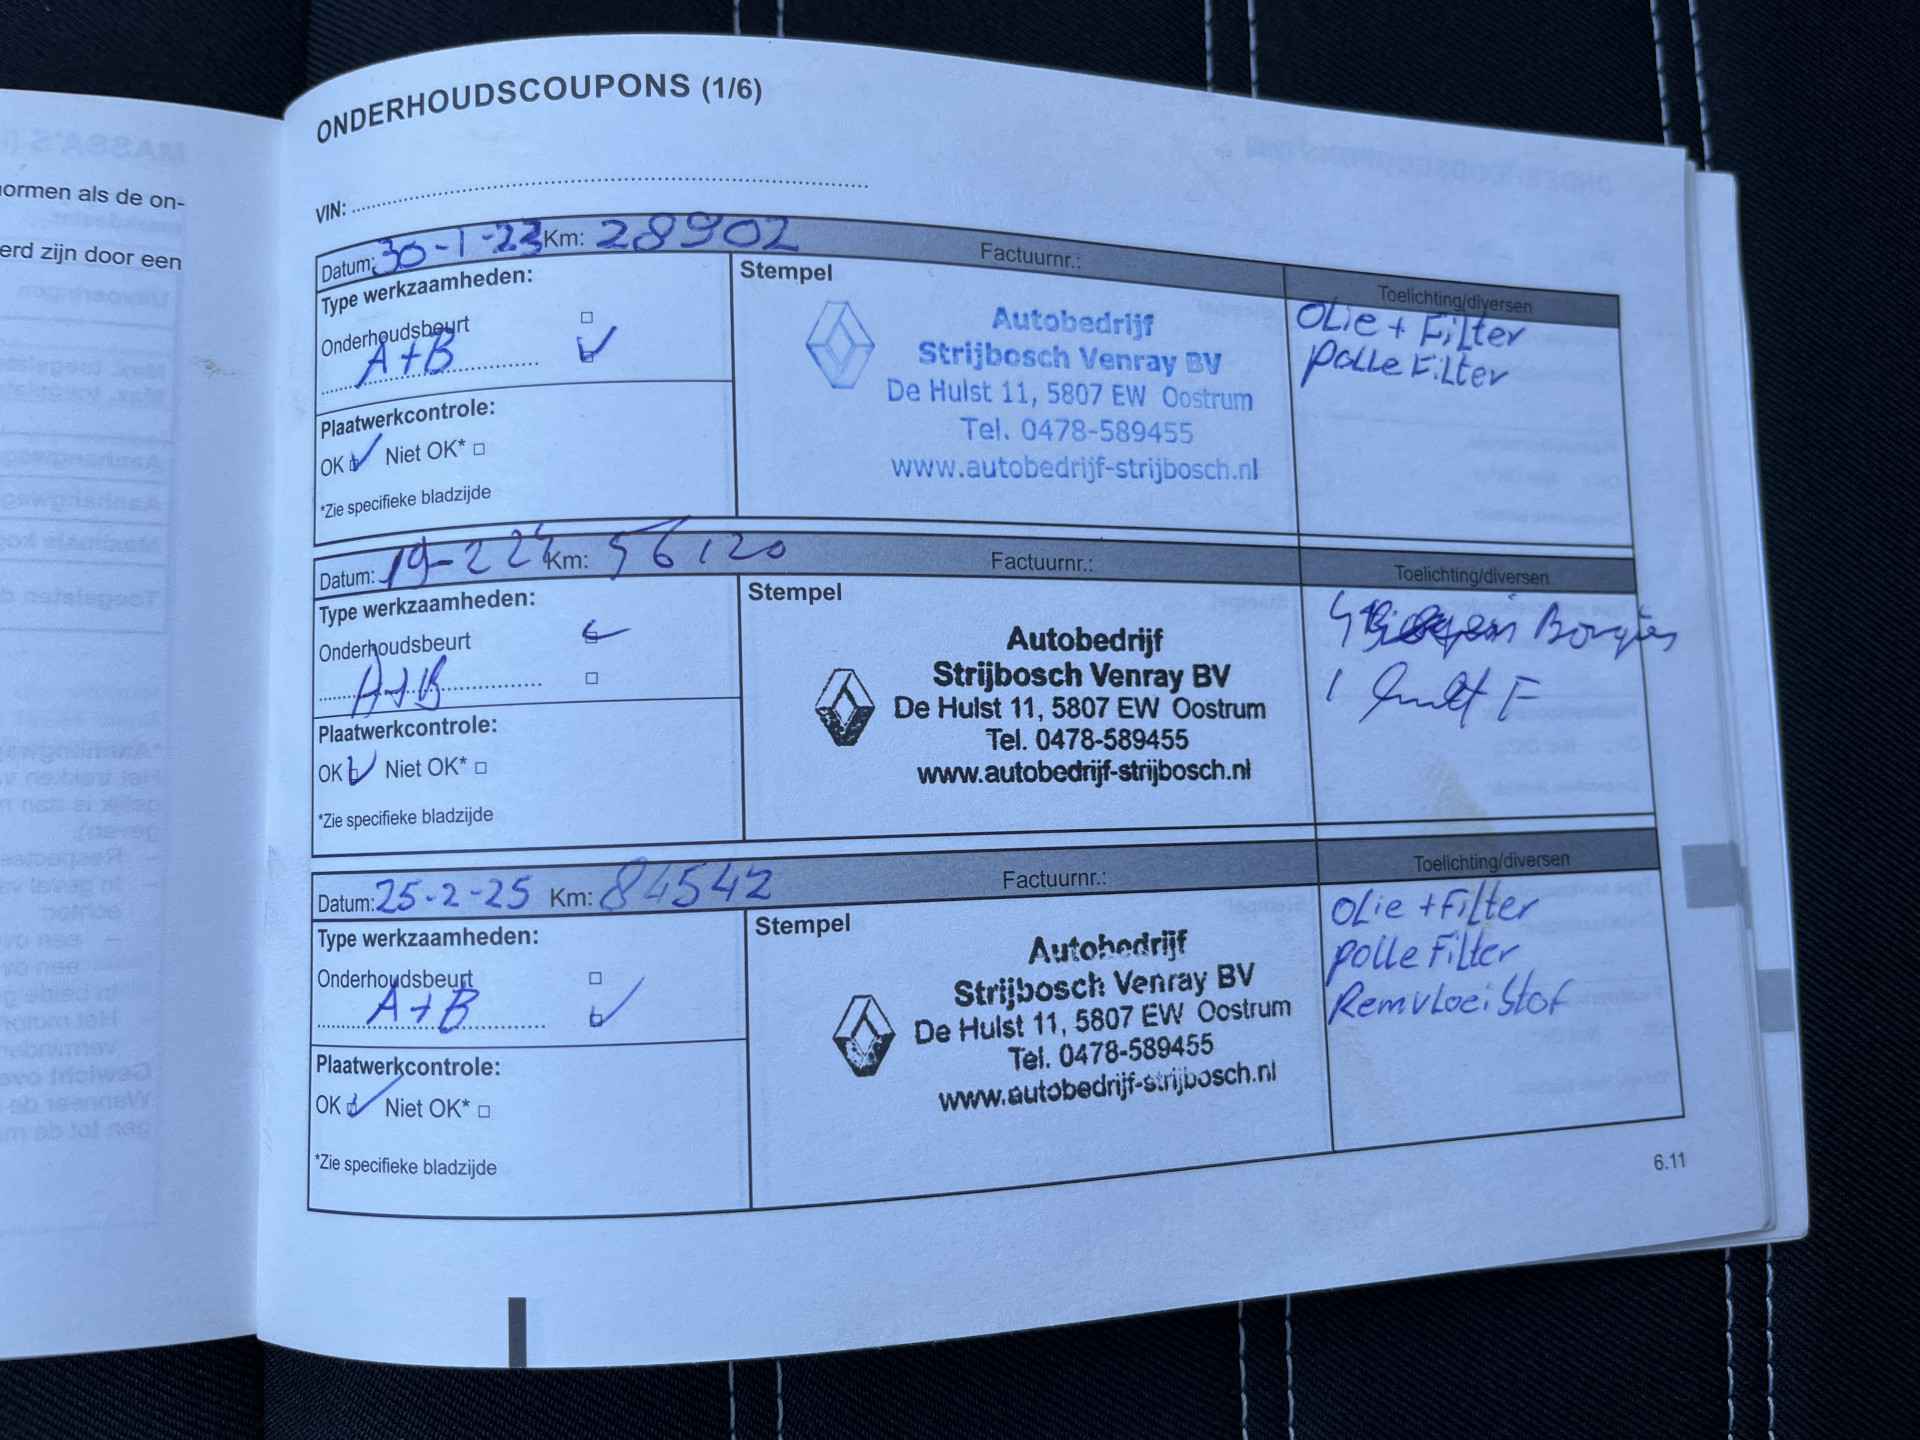 ormen als de on-
erd zijn door een
ONDERHOUDSCOUPONS (1/6)
VIN:
Datum: 30-1-23 Km: 28902 Factuurnr.: Toelichting/diversen
Type werkzaamheden:
Onderhoudsbeurt
A+B
Plaatwerkcontrole:
OK Niet OK*
*Zie specifieke bladzijde
Stempel
Autobedrijf
Strijbosch Venray BV
De Hulst 11, 5807 EW Oostrum
Tel. 0478-589455
www.autobedrijf-strijbosch.nl
OLie + FiLter
polle FiLter
Datum: 19-2 24 Km: 56120 Factuurnr.: Toelichting/diversen
Type werkzaamheden:
Onderhoudsbeurt
A+B
Plaatwerkcontrole:
OK Niet OK*
*Zie specifieke bladzijde
Stempel
Autobedrijf
Strijbosch Venray BV
De Hulst 11, 5807 EW Oostrum
Tel. 0478-589455
www.autobedrijf-strijbosch.nl
4
1 F
Datum: 25-2-25 Km: 84542 Factuurnr.: Toelichting/diversen
Type werkzaamheden:
Onderhoudsbeurt
A+B
Plaatwerkcontrole:
OK Niet OK*
*Zie specifieke bladzijde
Stempel
Autobedrijf
Strijbosch Venray BV
De Hulst 11, 5807 EW Oostrum
Tel. 0478-589455
www.autobedrijf-strijbosch.nl
OLie + FiLter
polle FiLter
RemvLoeiStof
6.11